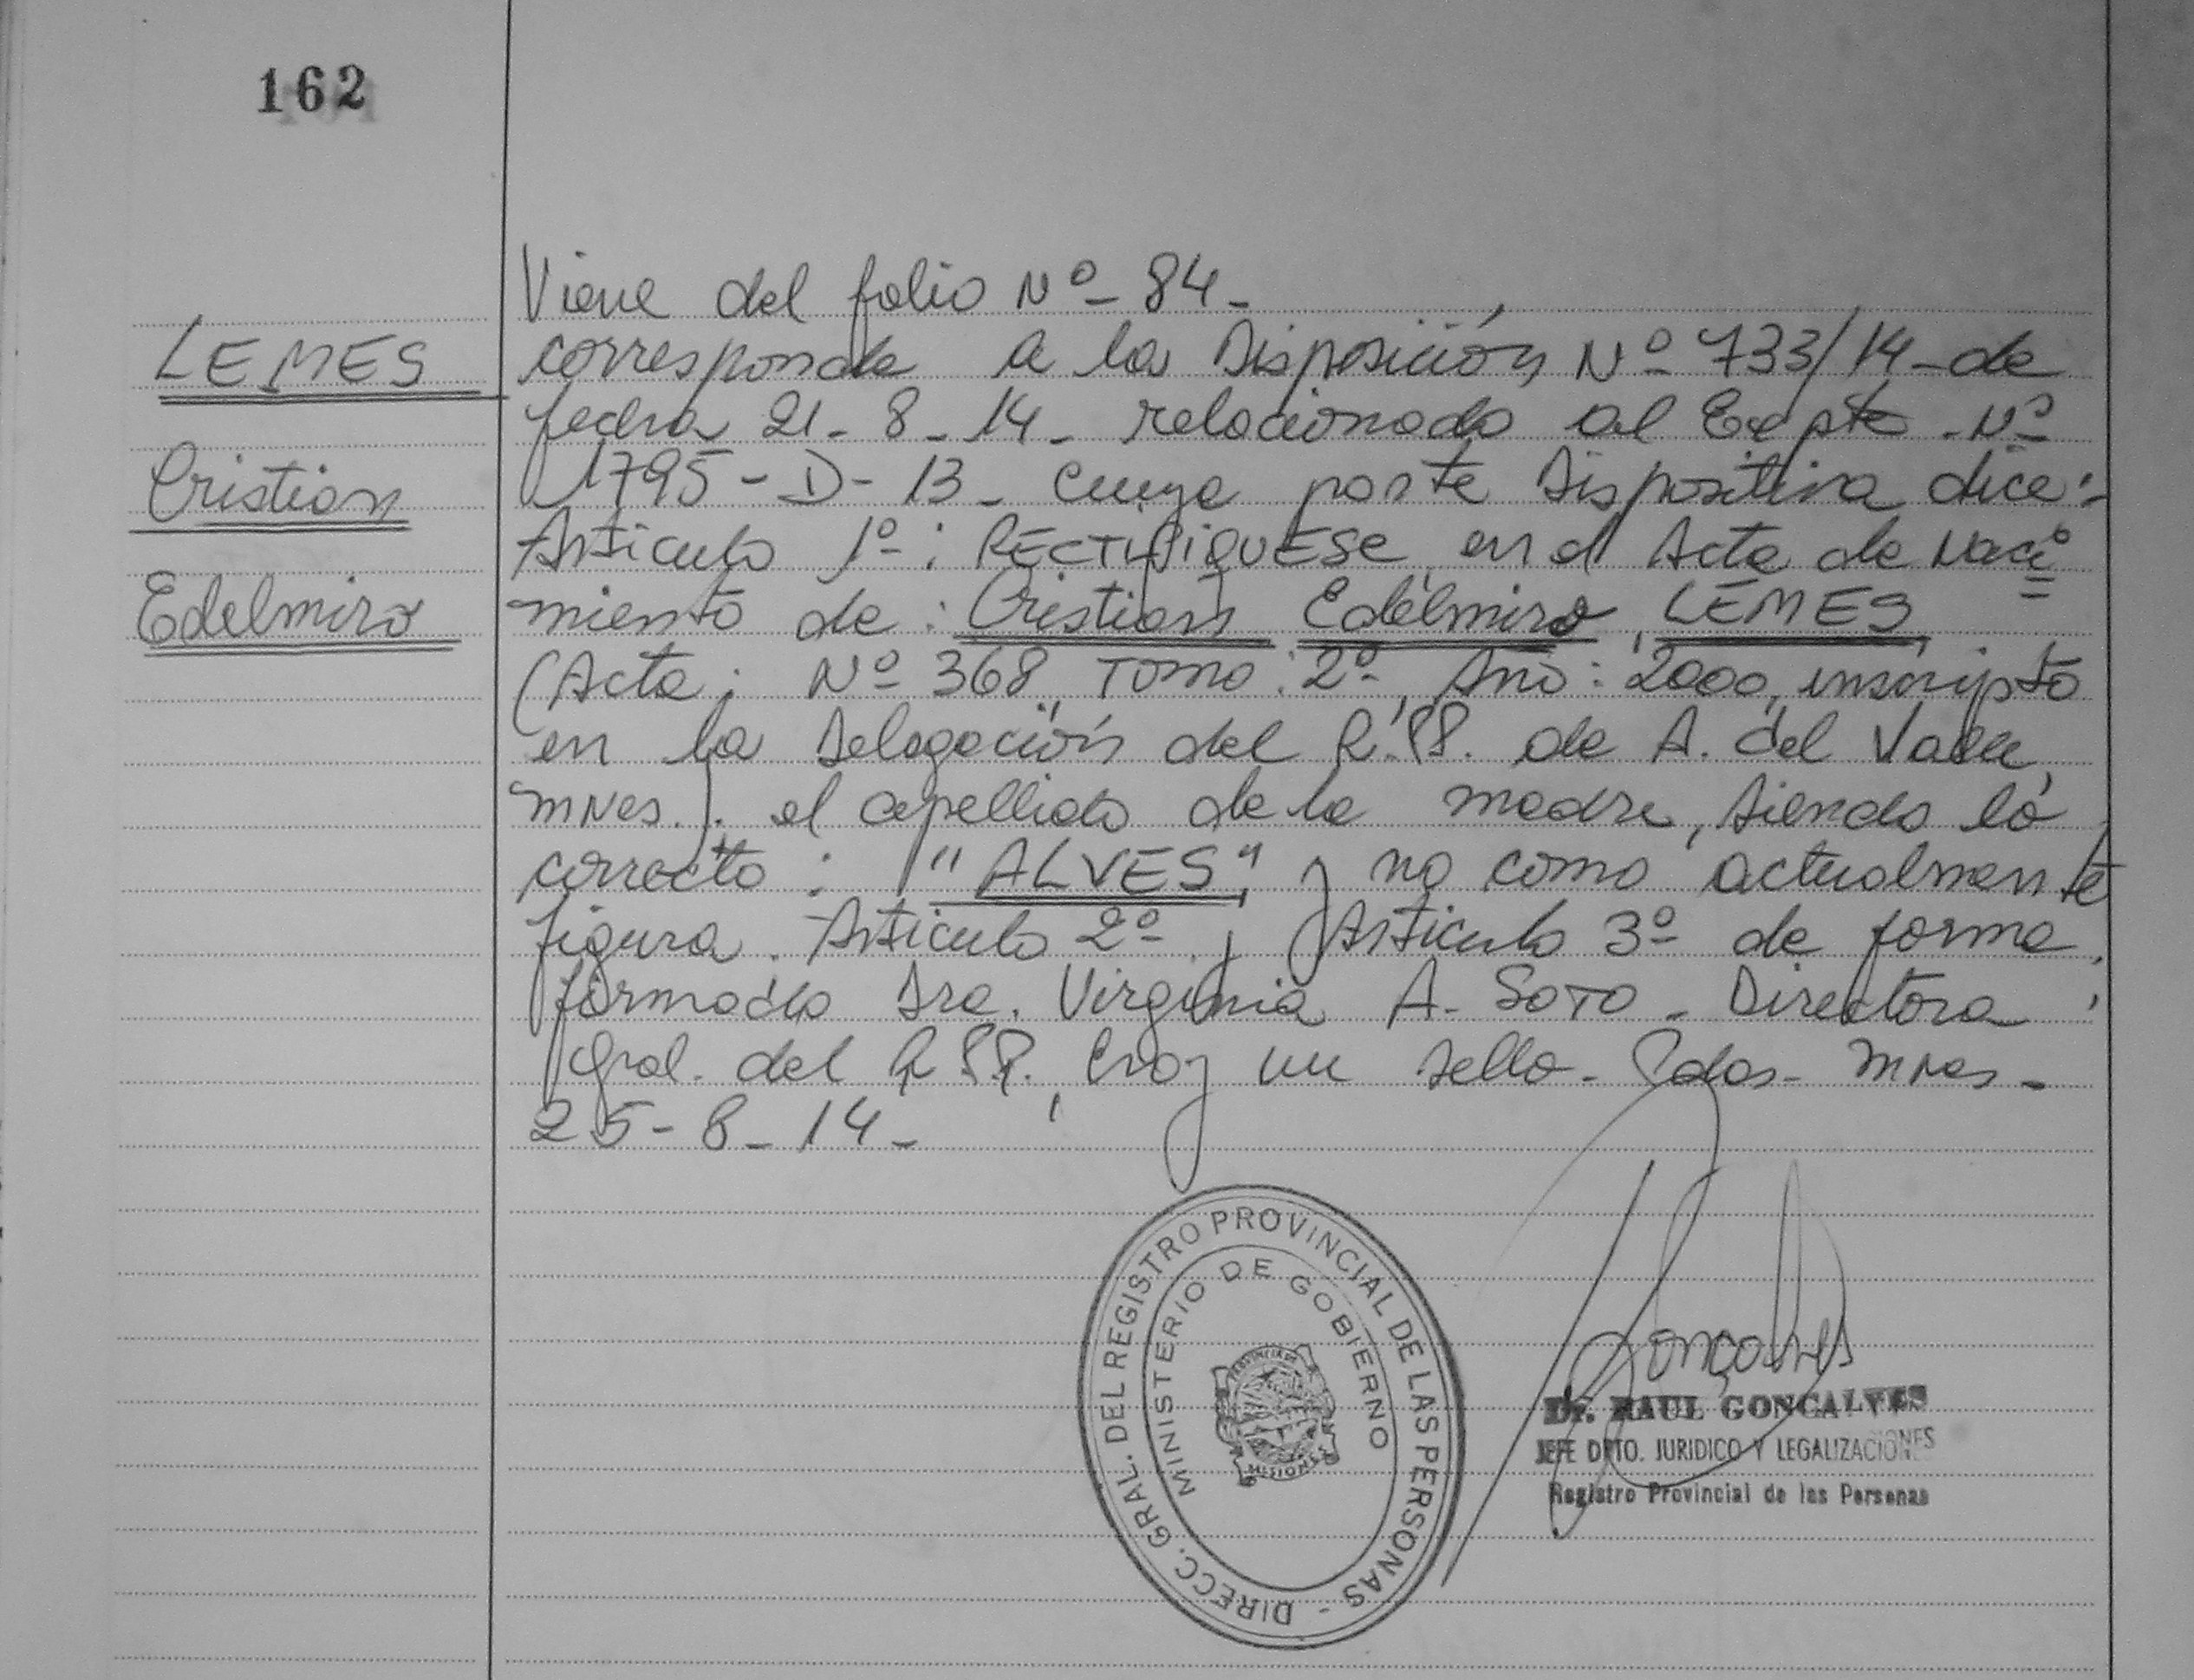 162
LEMES
Cristian
Edelmiro
Viene del folio Nº- 84-
corresponde a la Disposición Nº 733/14-de
fecha 21-8-14- relacionado al Expte-Nº
1795-D-13- Cuya parte Dispositiva dice:
Articulo 1º: RECTIFIQUESE en el Acta de Naci
miento de: Cristian Edelmiro LEMES
(Acta: Nº 368, Tomo: 2º, Año: 2000, inscripto
en la Delegación del R.PP. de A. del Valle,
MNes.). el apellido de la madre, siendo lo
correcto: "ALVES", y no como actualmente
figura. Articulo 2º y Articulo 3º de forma,
firmado Dra. Virginia A. SOTO- Directora
Gral. del RPP., hay un sello- Pdas- Mnes-
25-8-14-
DIRECC. GRAL. DEL REGISTRO PROVINCIAL DE LAS PERSONAS -
MINISTERIO DE GOBIERNO
PROVINCIA DE
MISIONES
Gonçalves
Dr. RAUL GONCALVES
JEFE DPTO. JURIDICO Y LEGALIZACIONES
Registro Provincial de las Personas